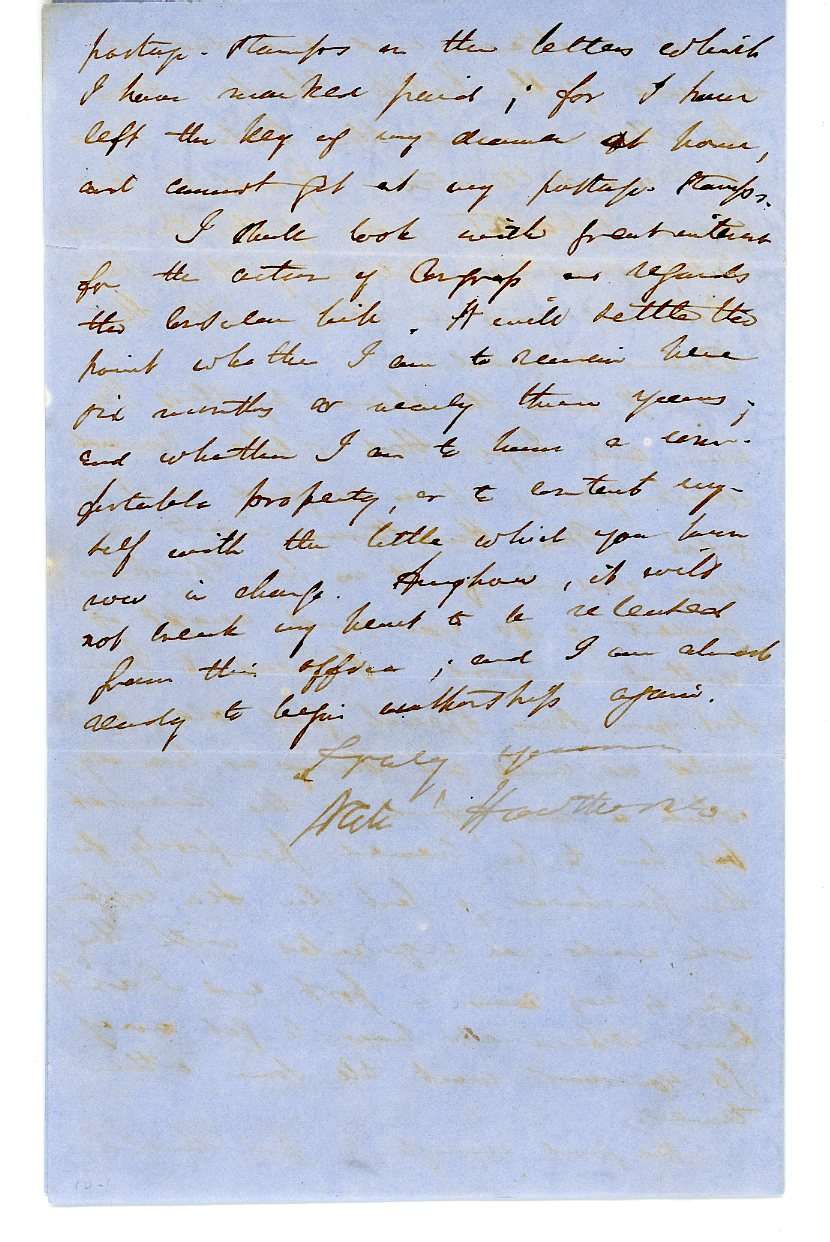 postage-stamps on the letters which
I have marked paid; for I have
left the key of my drawer at home,
and cannot get at my postage-stamps.
I shall look with great interest
for the action of Congress as regards
the Consular bill. It will settle the
point whether I am to remain here
six months or nearly three years;
and whether I am to have a com-
fortable property, or to content my-
self with the little which you have
now in charge. Anyhow, it will
not break my heart to be released
from this office; and I am almost
ready to begin authorship again.
Truly yours
Nath Hawthorne